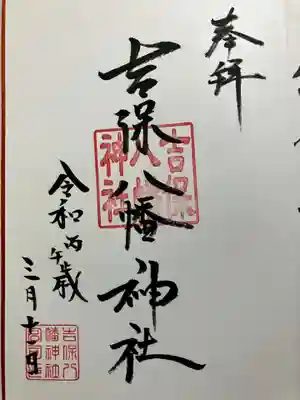 奉拝
吉保八幡神社
吉保
八幡
神社
令和丙午歳
三月十日
吉保八
幡神社